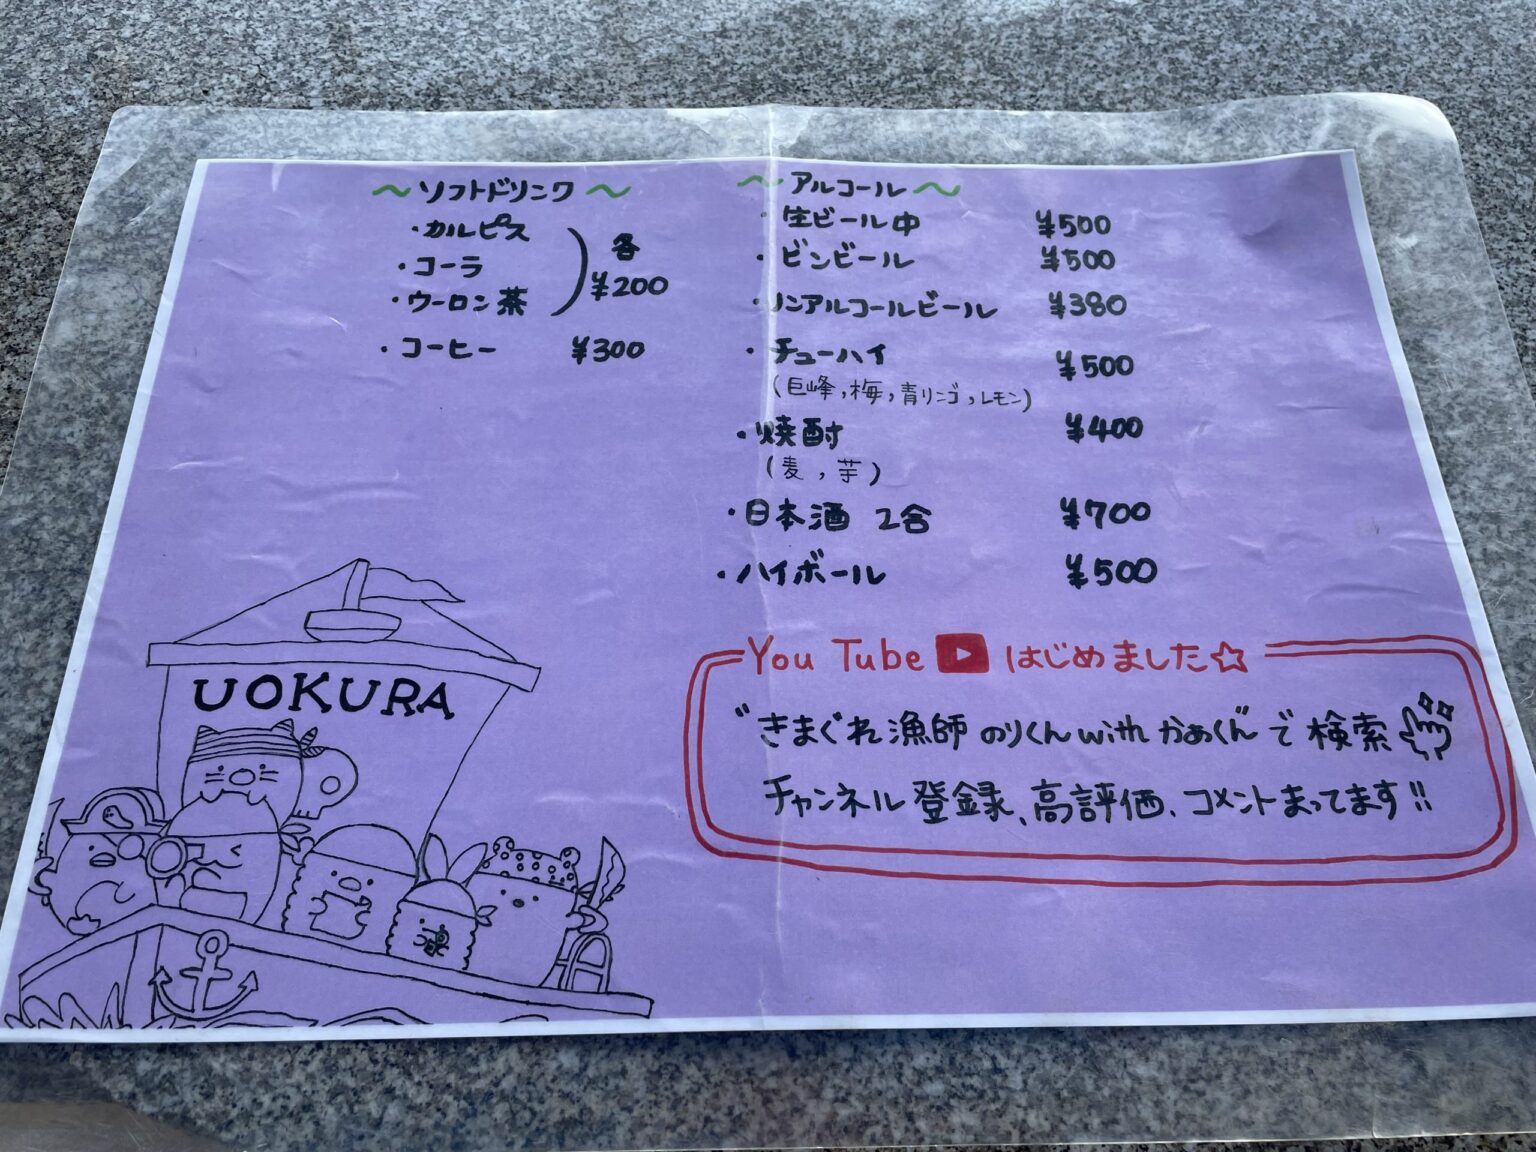 〜ソフトドリンク〜
・カルピス
・コーラ
・ウーロン茶
各
¥200
・コーヒー ¥300
〜アルコール〜
・生ビール中 ¥500
・ビンビール ¥500
・ノンアルコールビール ¥380
・チューハイ ¥500
(巨峰,梅,青リンゴ,レモン)
・焼酎 ¥400
(麦,芋)
・日本酒 2合 ¥700
・ハイボール ¥500
You Tube はじめました☆
"きまぐれ漁師 のりくん with かあくん"で検索
チャンネル登録、高評価、コメントまってます!!
UOKURA